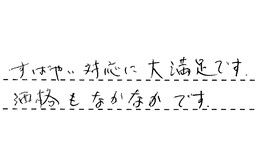 すばやい対応に大満足です.
価格もなかなかです.